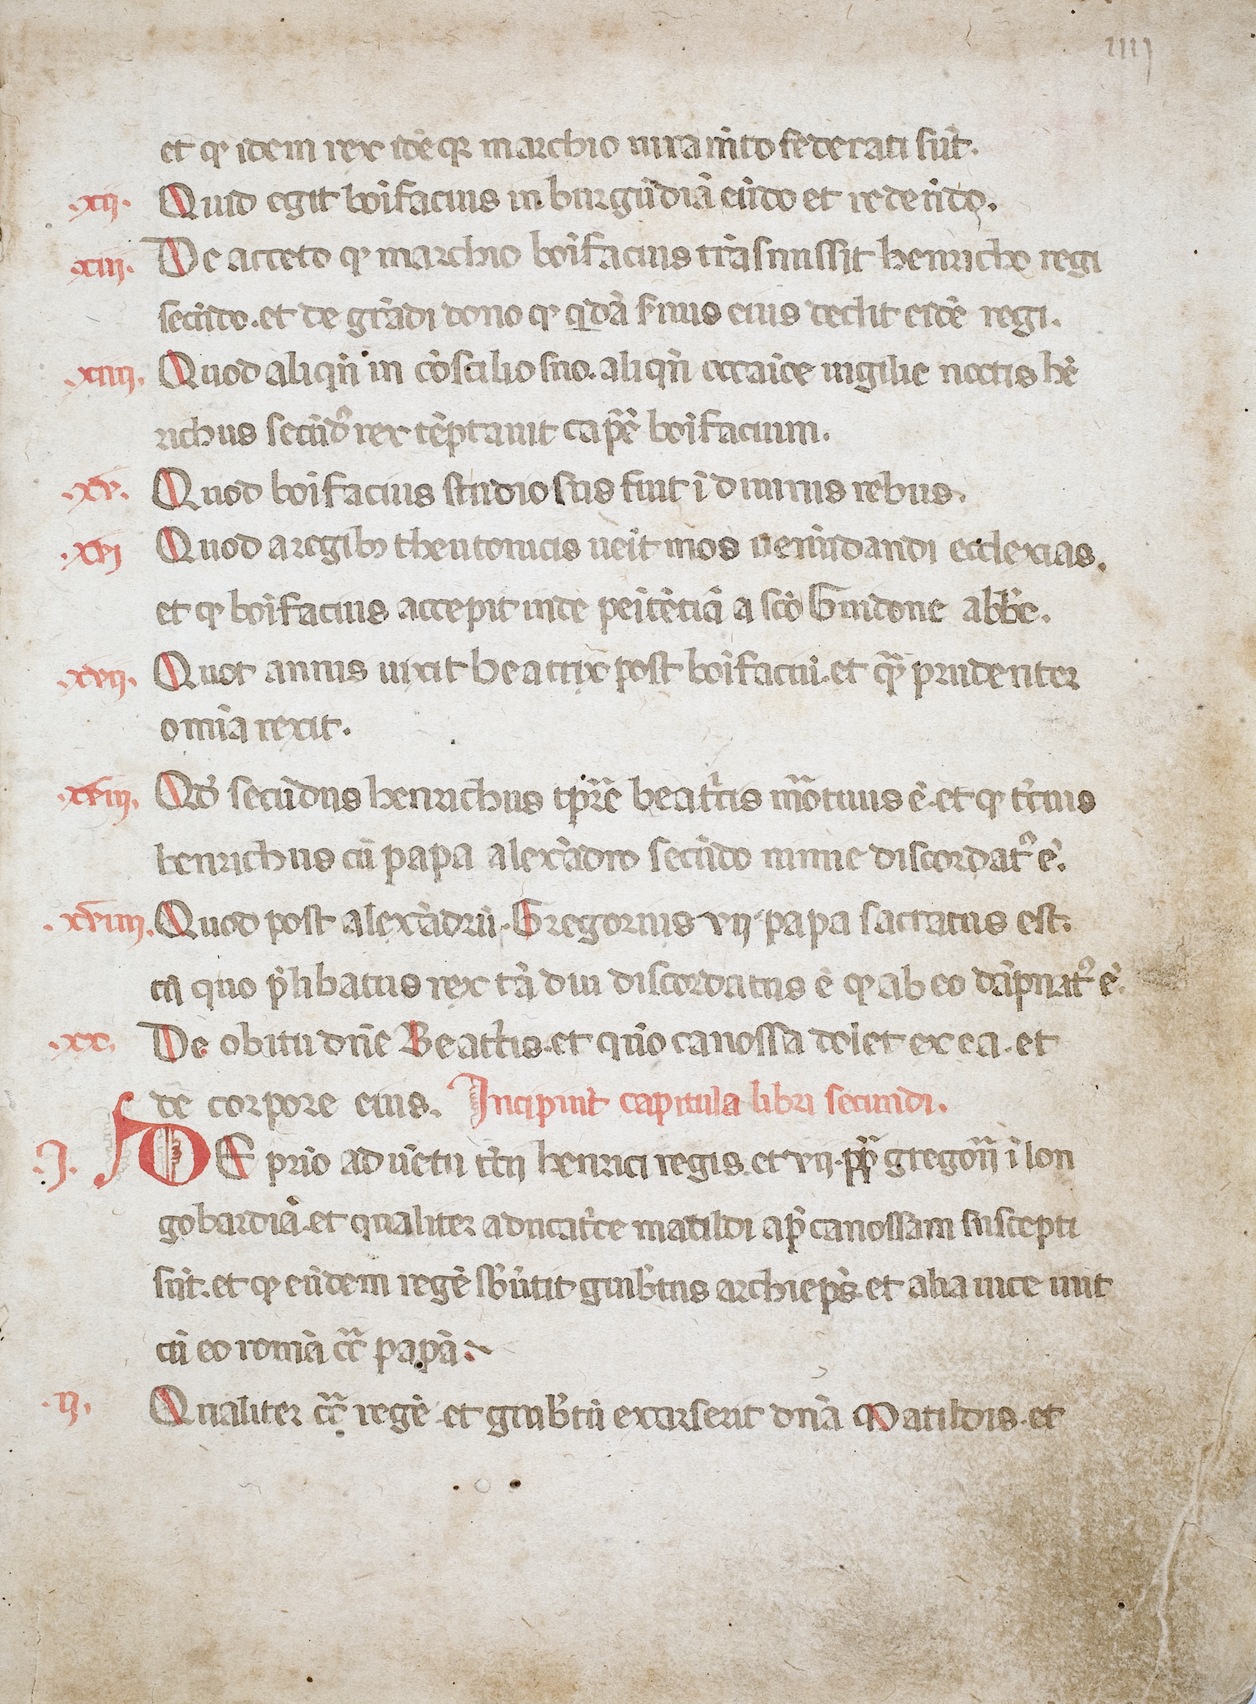 IIIJ
et qͥ idem rex idēqꝫ marchio iuram̄to federati sūt.
.xij. Quid egit boīfacius in burgūdiā eūdo et redeūdo.
.xiii. De acceto qͥ marchio boīfacius trāsmissit henricho regi
secūdo. et de grādi dono qͥ qdā s̄uus eius dedit eidē regi.
.xiiii. Quod aliqn̄ in cōscilio suo. aliqn̄ occaīōe uigilie noctis hē
richus secūdꝰ rex tēptauit cap̄e boīfacium.
.xv. Quod boīfacius studiosus fuit ī diuinis rebus.
.xvi Quod a regibꝫ theutonicis ueīt mos uenūdandi ecclexias.
et qͥ boīfacius accepit inde peītētiā a scō Guidone abb̄e.
.xvii. Quot annis uixit beatrix post boīfaciū. et qᷓ prudenter
omīa rexit.
.xviii. Qd̄ secūdus henrichus tp̄re beatͥcis mᷓotuus ē. et qͥ tc̄ius
henrichus cū papa alexādro secūdo nimie discordatꝰ ē.
.xviiii. Quod post alexādrū. Gregorius vij. papa sacratus est.
cū quo p̄libatus rex tā diu discordatus ē qͥ ab eo dāpnatꝰ ē.
.xx. De obitu dn̄e Beatͥcis. et quō canossa dolet ex ea. et
de corpore eius. Incipiūt capitula libri secundi.
.J. DE prīo aduētu tc̄ij henrici regis. et vij. pp̄ gregorij ī lon
gobardiā. et qualiter aducatͥce matildi ap̄ canossam suscepti
sūt. et qͥ eūdem regē sb̄ūtit guib̄tus archiep̄s. et alia uice iuit
cū eo romā cᷓ papā.
.ij. Qualiter cᷓ regē et guib̄tū exarserit dn̄a Matildis. et